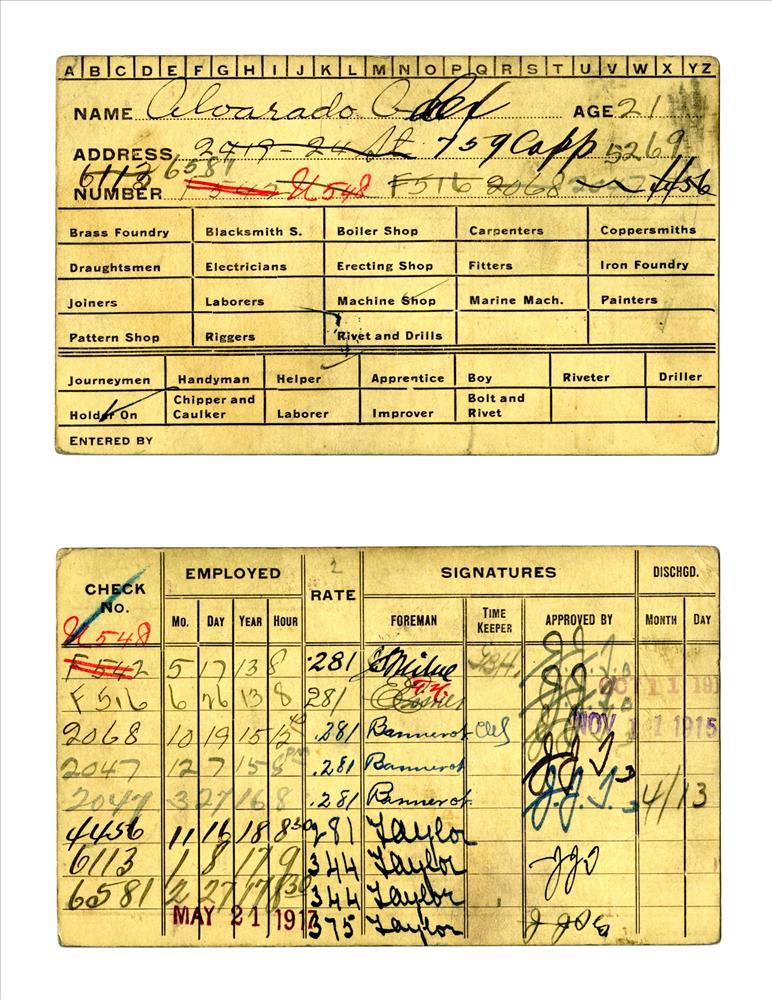 A B C D E F G H I J K L M N O P Q R S T U V W X Y Z
NAME Alvarado AGE 21
ADDRESS 2419-24 St 759 Capp 5269
6113 6581
NUMBER F 542 U548 F516 2068 2047 4456
Brass Foundry Blacksmith S. Boiler Shop Carpenters Coppersmiths
Draughtsmen Electricians Erecting Shop Fitters Iron Foundry
Joiners Laborers Machine Shop Marine Mach. Painters
Pattern Shop Riggers Rivet and Drills
Journeymen Handyman Helper Apprentice Boy Riveter Driller
Holder On Chipper and Caulker Laborer Improver Bolt and Rivet
ENTERED BY
CHECK No. EMPLOYED RATE 2 SIGNATURES DISCHGD.
MO. DAY YEAR HOUR FOREMAN TIME KEEPER APPROVED BY MONTH DAY
U548
F542 5 17 13 8 .281 Milne
F516 6 26 13 8 281 OCT 11 191
2068 10 19 15 12 .281 Bannerot NOV 11 1915
2047 12 7 15 8 .281 Bannerot J.J.
2047 3 27 16 8 .281 Bannerot J.J. 4/13
4456 11 16 18 8 30 281 Taylor
6113 1 8 17 9 344 Taylor
6581 2 27 17 8 30 344 Taylor
MAY 21 1917 375 Taylor